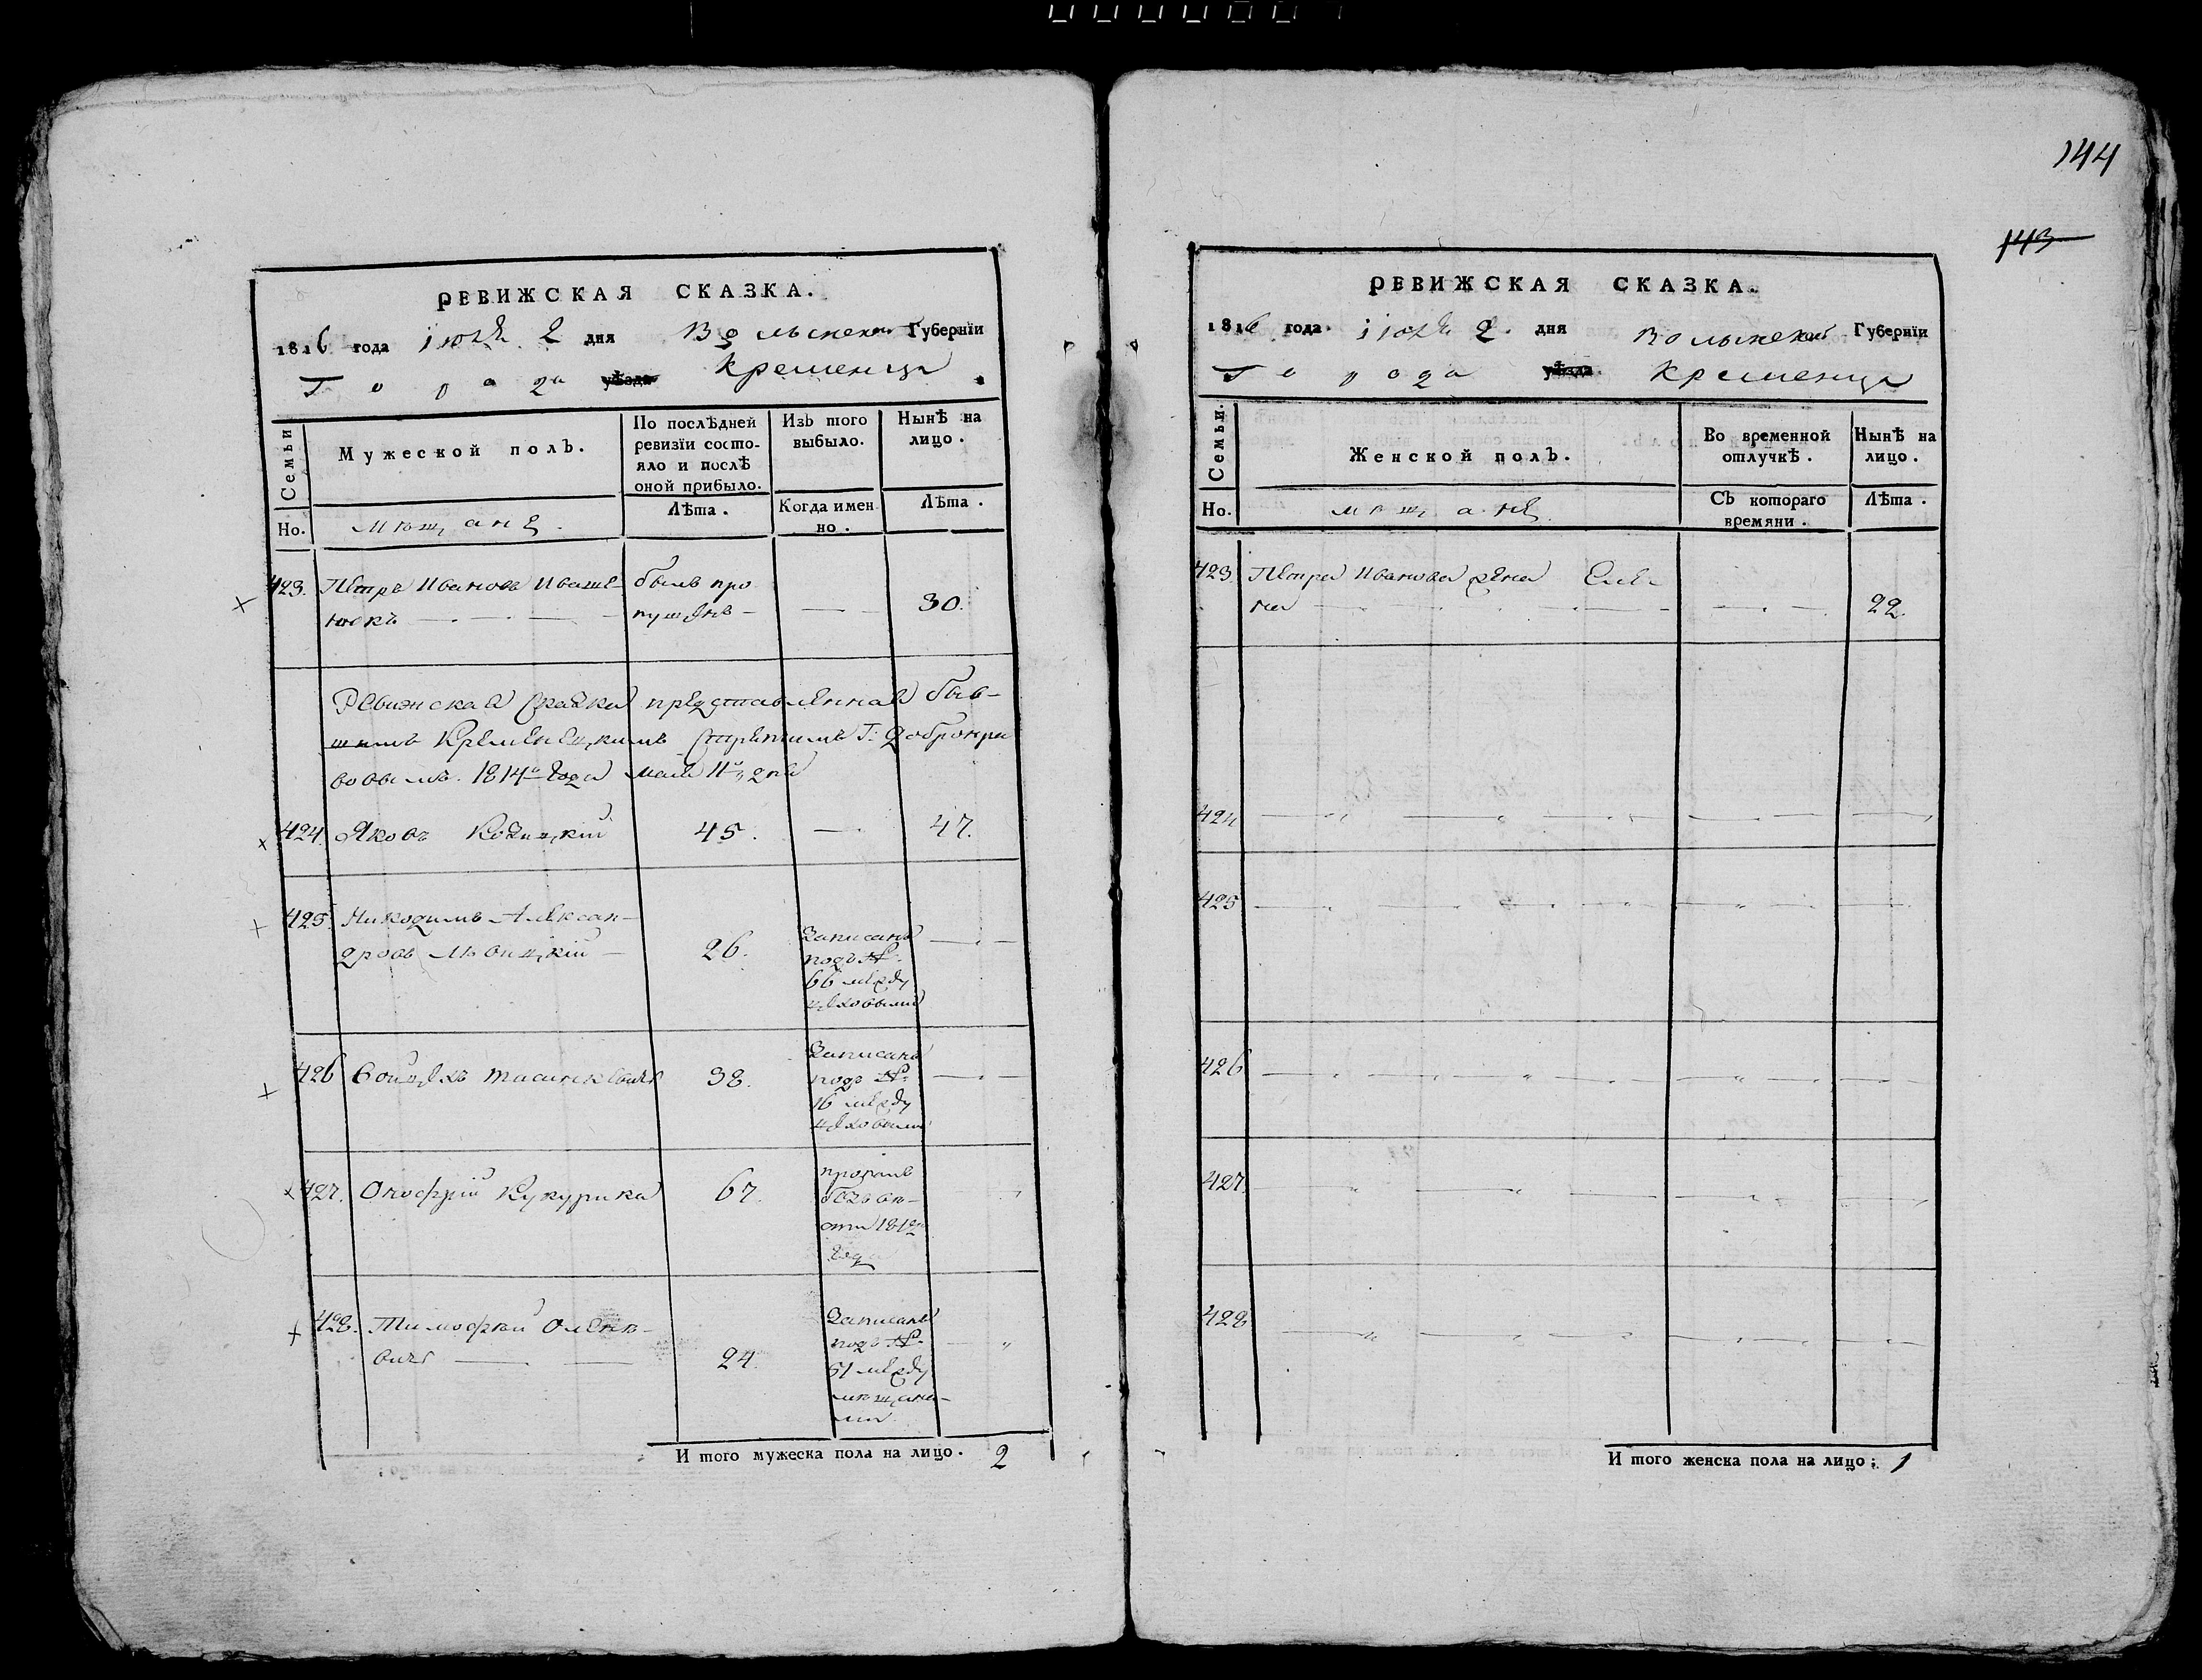 144
143
РЕВИЖСКАЯ СКАЗКА.
1816 года іюля 2 дня Волынской Губернїи
Города уѣзда Кременца
Семьи
Мужеской полъ.
По послѣдней ревизїи состояло и послѣ оной прибыло.
Изъ того выбыло.
Нынѣ на лицо.
Но.
мѣщанѣ
Лѣта.
Когда именно.
Лѣта.
423. Петръ Ивановъ Иваше- былъ про-
нюкъ пущенъ — 30.
Ревижская Сказка представленная быв-
шимъ Кременецкимъ Г:
1814го года мая 11го дня
424. Яковъ 45. — 47.
425. Никодимъ Алексан-
дровъ 26. Записанъ
подъ №
66 между
цеховыми
426 Войцехъ 38. Записанъ
подъ №
16 между
цеховыми
427. Онофрій Кукурика 67.
года
428. Тимофѣй Олекѣ-
вичъ 24. Записанъ
подъ №
61 между
мѣщана-
ми
И того мужеска пола на лицо. 2
РЕВИЖСКАЯ СКАЗКА.
1816 года іюля 2. дня Волынской Губернїи
Города уѣзда Кременца
Семьи.
Женской полъ.
Во временной отлучкѣ.
Нынѣ на лицо.
Но.
мѣщанѣ
Съ котораго времяни.
Лѣта.
423 Петра Иванова жена Еле-
на 22.
424
425
426
427.
428
И того женска пола на лицо; 1